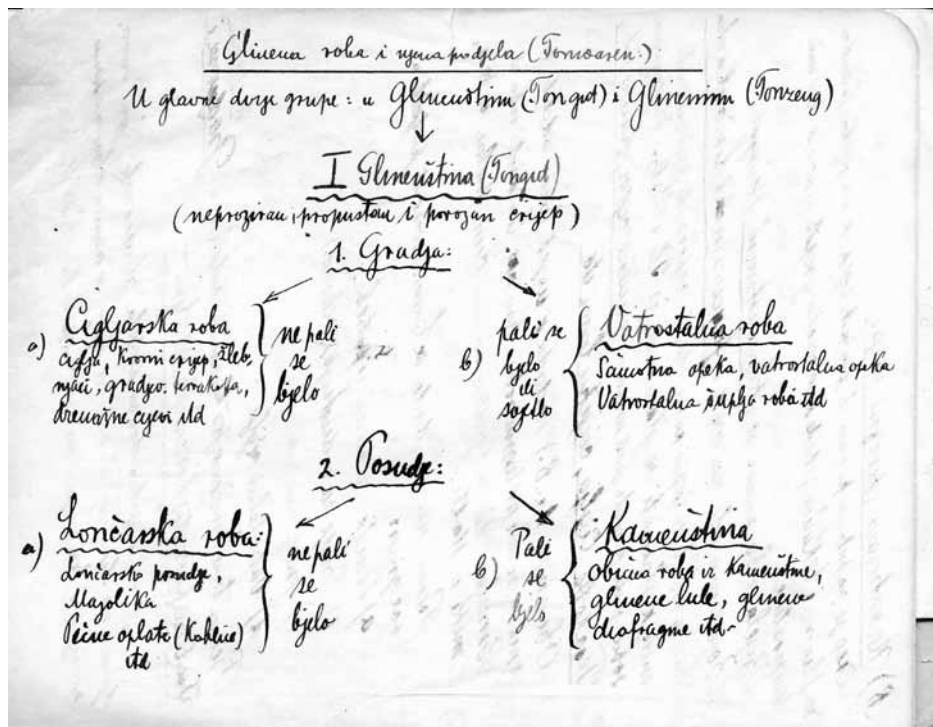 Glinena roba i njena podjela (Tonwaren:)
U glavne dvije grupe: u Glineuštinu (Tongut) i Glineninu (Tonzeug)
I Glineuština (Tongut)
(neproziran, propustan i porozan crijep)
1. Gradja:
a) Cigljarska roba
ciglja, krovni crijep, žleb-
njaci, gradjev. terrakotta,
drenažne cijevi itd
ne pali
se
bjelo
b) pali se
bjelo
ili
svjetlo
Vatrostalna roba
Šamotna opeka, vatrostalna opeka
Vatrostalna šuplja roba itd
2. Posudje:
a) Lončarska roba:
Lončarsko posudje,
Majolika
Pećne oplate (Kahlice)
itd
ne pali
se
bjelo
b) Pali
se
bjelo
Kameuština
Obična roba iz Kameuštine,
glinene lule, glinene
diafragme itd-